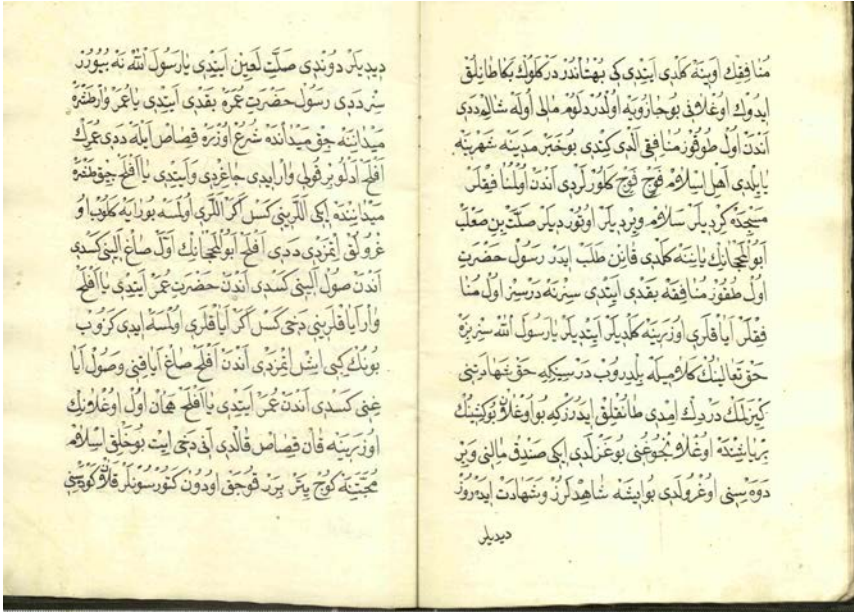 منافقك اوينه كلدى ايتدى كى بهتاندر دركلوك بكا طانلق
ايدوك اوغلانى بوجازويه اولدردلوم مالى اوله شالر ددى
اندن اول طوقوز منافقى الدى كتدى بو خبر مدينه شهرينه
يايلدى اهل اسلام فوج فوج كلورلردى اندن اول منافقلر
مسجده كرديلر سلام ويرديلر اوتورديلر صلت بن صعلب
ابو اللجانك ياننه كلدى قانن طلب ايدر رسول حضرت
اول طقوز منافقه بقدى ايتدى سزنه درسز اول منا
فقلر اياقلرى اوزرينه كلديلر ايتديلر يا رسول الله سز بزه
حق تعالينك كلاميله بلدروب درسكه حق شهادتنى
كيزلمك دردك امدى طانقلق ايدرزكه بو اوغلان بو كشينك
بر ياشنده اوغلانجوغنى بوغزلدى ايكى صندق مالنى وبر
دوه سنى اوغرولدى بو ايشه شاهدلرز وشهادت ايده روز
ديديلر
ديديلر دوندى صلت لعين ايتدى يا رسول الله نه بيورر
سز ددى رسول حضرت عمره بقدى ايتدى يا عمر وار طشره
ميداننه چق ميدانده شرع اوزره قصاص ايله ددى عمرك
افلح ادلو بر قولى وار ايدى چاغردى وايتدى يا افلح چق طشره
ميداننده ايكى اللرينى كس كر اللرى اولمسه بورايه كلوب او
غرولق اتمزدى ددى افلح ابو اللجانك اول صاغ الينى كسدى
اندن صول الينى كسدى اندن حضرت عمر ايتدى يا افلح
وار اياقلرينى دخى كس كر اياقلرى اولمسه ايدى كروب
بونك كبى ايش اتمزدى اندن افلح صاغ اياغنى وصول ايا
غنى كسدى اندن عمر ايتدى يا افلح همان اول اوغلانك
اوزرينه قان قصاص قالدى انى دخى ايت بو خلق اسلام
محبتنه كوج يتر برر قوجق اودون كتورسونلر